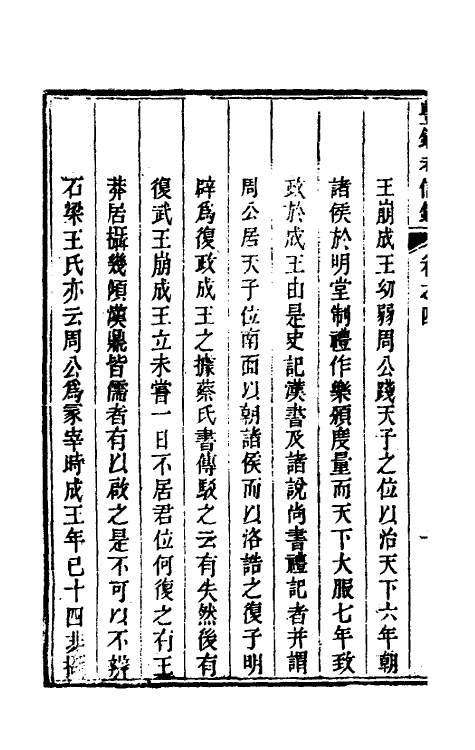 豐鎬考信錄 卷之四
王崩成王幼弱周公踐天子之位以治天下六年朝
諸侯於明堂制禮作樂頒度量而天下大服七年致
政於成王由是史記漢書及諸說尚書禮記者並謂
周公居天子位南面以朝諸侯而以洛誥之復子明
辟爲復政成王之據蔡氏書傳駁之云有失然後有
復武王崩成王立未嘗一日不居君位何復之有王
莽居攝幾傾漢鼎皆儒者有以啟之是不可以不辨
石梁王氏亦云周公爲冢宰時成王年已十四非攝